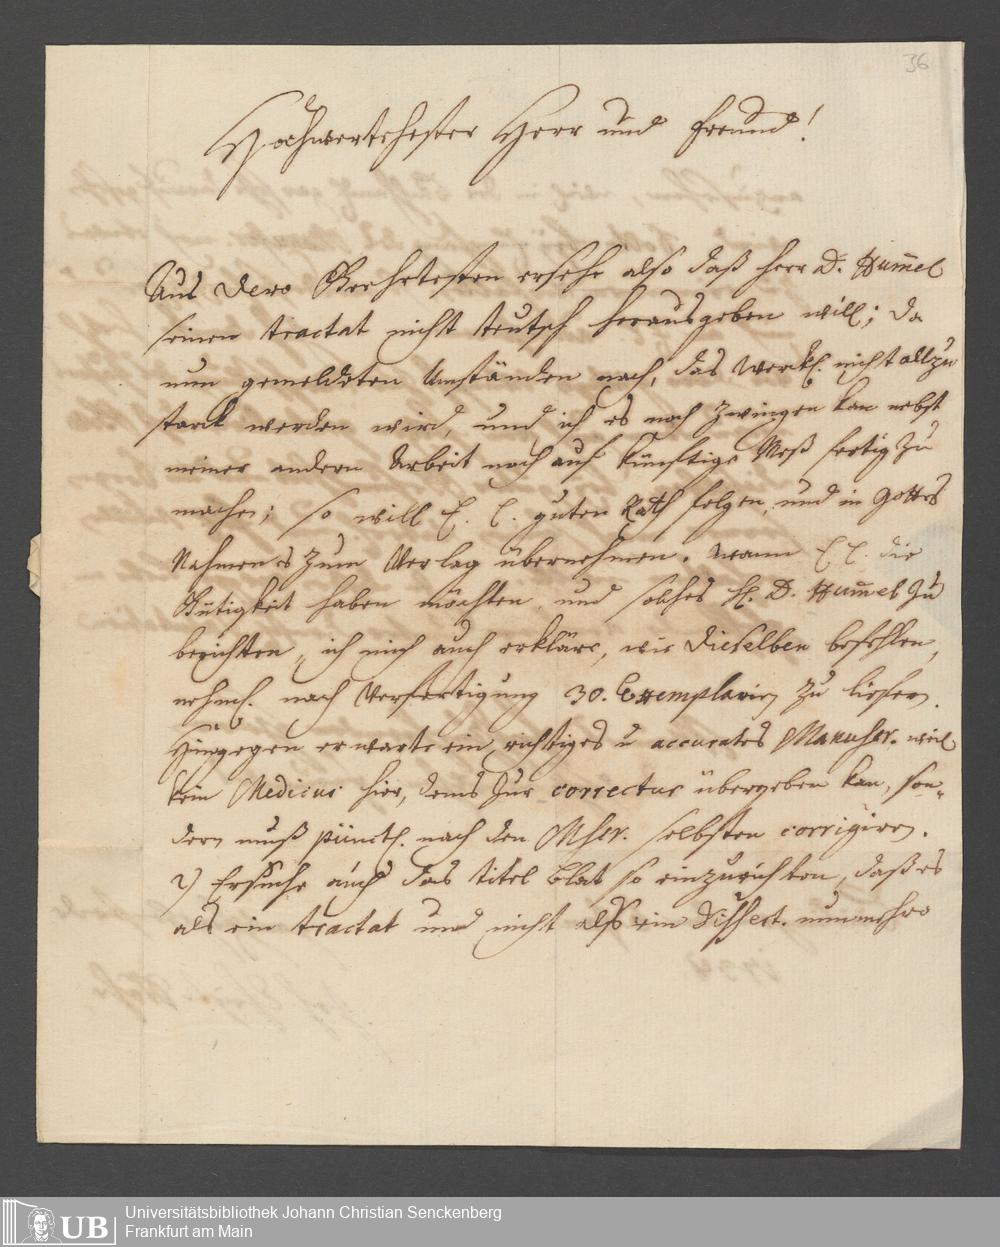 36
Hochwerthester Herr und Freund!
Aus Dero Geehrtesten ersehe also daß Herr D. Hum̄el
seinen tractat nicht teutsch herausgeben will; da
nun gemeldeten Umständen nach, das Werckh. nicht allzu
starck werden wird, und ich es noch zwingen kan nebst
meiner andern Arbeit noch auf künftige Meß fertig zu
machen; so will E. E. guten Rath folgen, und in Gottes
Nahmen es zum Verlag übernehmen. wann E. E. die
Gütigkeit haben möchten und solches H. D. Hum̄el zu
berichten, ich mich auch erkläre, wie Dieselben befehlen,
nehml. nach Verfertigung 30. Exemplarien zu liefern.
Hingegen erwarte ein richtiges u accurates Manuscr. weil
kein Medicus hier, dems zur correctur übergeben kan, son-
dern muß pünctl. nach den Mscr. selbsten corrigiren.
2) Ersuche auch das Titel Blat so einzurichten, daß es
als ein tractat und nicht alß ein Dissert. nunmehro
UB
Universitätsbibliothek Johann Christian Senckenberg
Frankfurt am Main